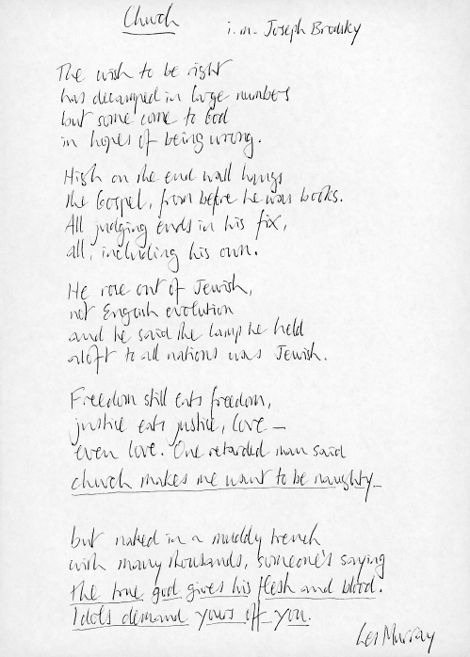 Church
i.m. Joseph Brodsky
The wish to be right
has decamped in large numbers
but some come to God
in hopes of being wrong.
High on the end wall hangs
the Gospel, from before he was books.
All judging ends in his fix,
all, including his own.
He rose out of Jewish,
not English evolution
and he said the lamp he held
aloft to all nations was Jewish.
Freedom still eats freedom,
justice eats justice, love —
even love. One retarded man said
church makes me want to be naughty—
but naked in a muddy trench
with many thousands, someone's saying
the true god gives his flesh and blood.
Idols demand yours off you.
Les Murray